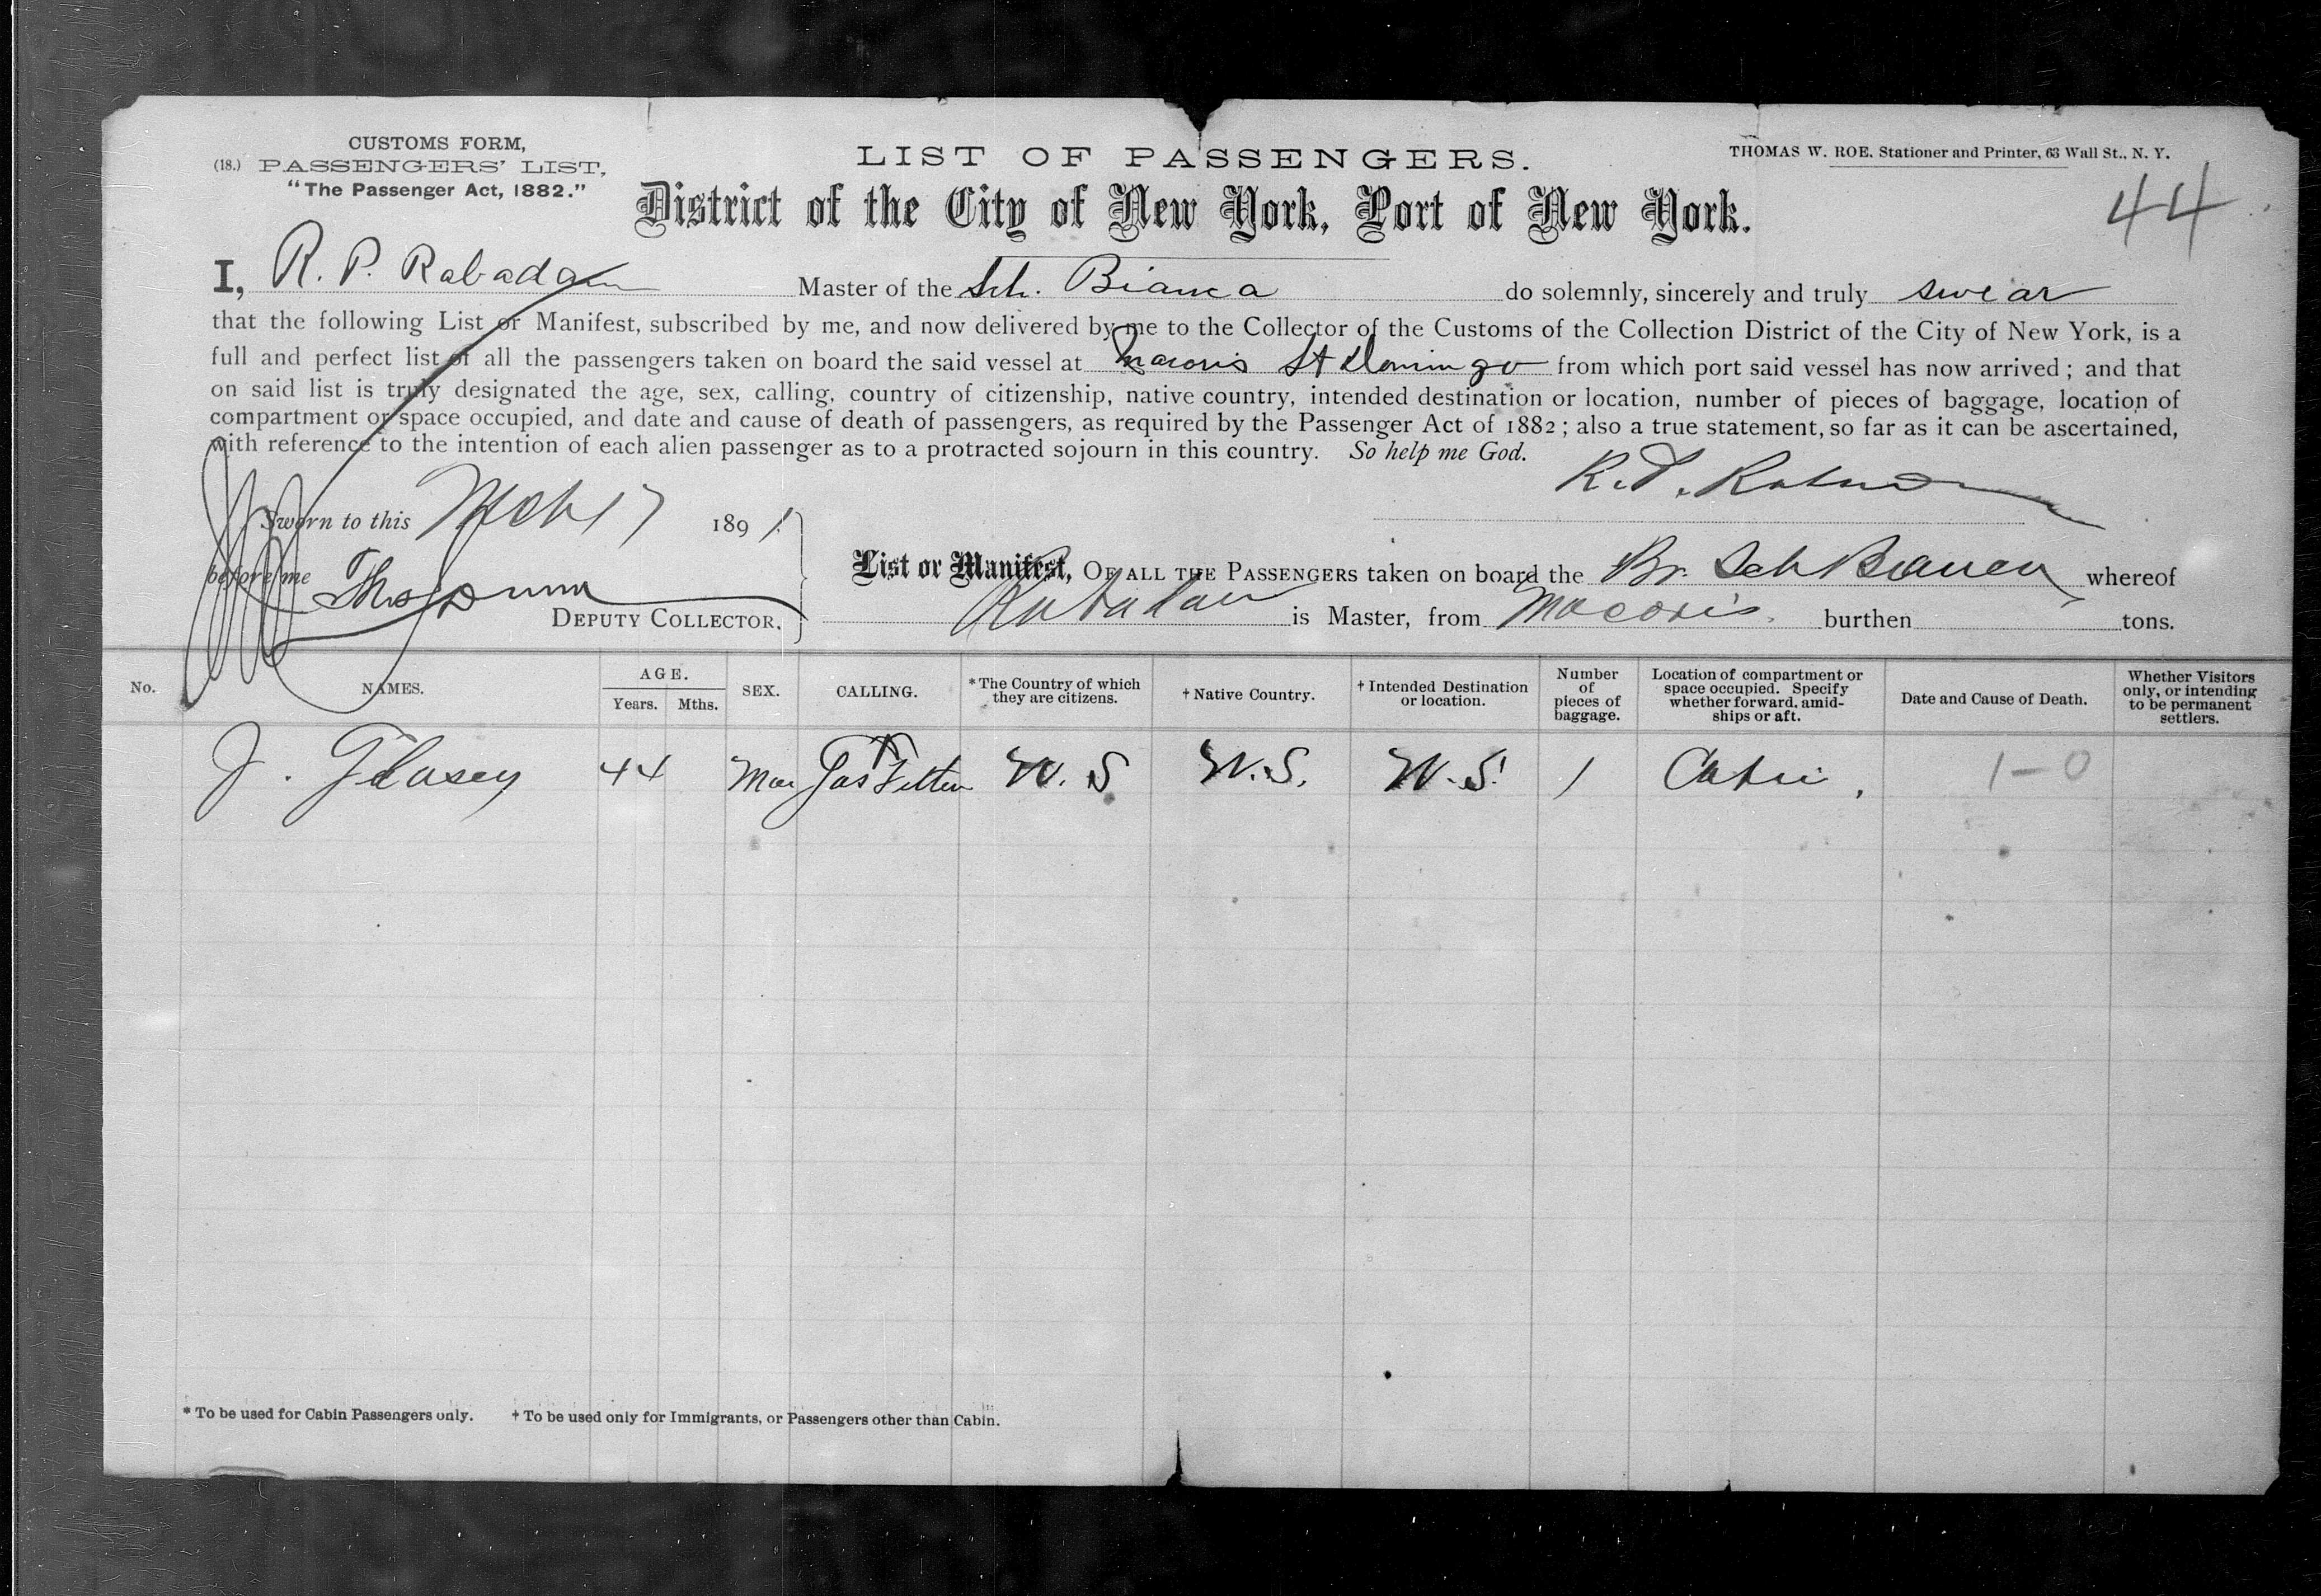 CUSTOMS FORM,
(18.) PASSENGERS' LIST,
"The Passenger Act, 1882."
LIST OF PASSENGERS.
THOMAS W. ROE, Stationer and Printer, 63 Wall St., N. Y.
District of the City of New York, Port of New York.
44
I, R. P. Rabadan Master of the Sch. Bianca do solemnly, sincerely and truly swear
that the following List or Manifest, subscribed by me, and now delivered by me to the Collector of the Customs of the Collection District of the City of New York, is a
full and perfect list of all the passengers taken on board the said vessel at Macoris St Domingo from which port said vessel has now arrived; and that
on said list is truly designated the age, sex, calling, country of citizenship, native country, intended destination or location, number of pieces of baggage, location of
compartment or space occupied, and date and cause of death of passengers, as required by the Passenger Act of 1882; also a true statement, so far as it can be ascertained,
with reference to the intention of each alien passenger as to a protracted sojourn in this country. So help me God.
R. P.
Sworn to this Mch 17 1891.
before me Thos
DEPUTY COLLECTOR.
List or Manifest, OF ALL THE PASSENGERS taken on board the Br. Sch Bianca whereof
Rabadan is Master, from Macoris. burthen tons.
No. NAMES. AGE. Years. Mths. SEX. CALLING. *The Country of which they are citizens. †Native Country. †Intended Destination or location. Number of pieces of baggage. Location of compartment or space occupied. Specify whether forward, amidships or aft. Date and Cause of Death. Whether Visitors only, or intending to be permanent settlers.
J. 44 Man Gas Fitter U. S U.S. U.S. 1 Cabin, 1-0
* To be used for Cabin Passengers only. † To be used only for Immigrants, or Passengers other than Cabin.